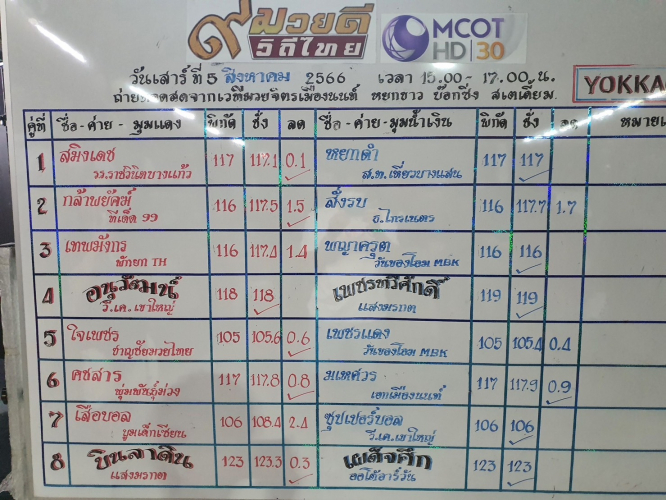 ๙ มวยดี
วิถีไทย
MCOT
HD 30
วันเสาร์ ที่ 5 สิงหาคม 2566 เวลา 15.00 - 17.00 น.
ถ่ายทอดสดจากเวทีมวยจิตรเมืองนนท์ หยกขาว บ๊อกซิ่ง สเตเดี้ยม
YOKKA
คู่ที่ ชื่อ - ค่าย - มุมแดง พิกัด ชั่ง ลด ชื่อ - ค่าย - มุมน้ำเงิน พิกัด ชั่ง ลด หมายเ
1 สมิงเดช 117 117.1 0.1 หยกดำ 117 117
วร.ราชวินิตบางแก้ว ส.ท.เที่ยวบางแสน
2 กล้าพยัคฆ์ 116 117.5 1.5 สั่งรบ 116 117.7 1.7
ทีเด็ด 99 ธ.ไกรเนตร
3 เทพมังกร 116 117.4 1.4 พญาครุฑ 116 116
พักยก TH วันของโอม MBK
4 อนุวัฒน์ 118 118 เพชรทวีศักดิ์ 119 119
วี.เค.เขาใหญ่ แสงมรกต
5 ใจเพชร 105 105.6 0.6 เพชรแดง 105 105.4 0.4
ชาญชัยมวยไทย วันของโอม MBK
6 คชสาร 117 117.8 0.8 มเหศวร 117 117.9 0.9
พุ่มพันธุ์ม่วง เอกเมืองนนท์
7 เสือบอล 106 108.4 2.4 ซุปเปอร์บอล 106 106
บูมเด็กเซียน วี.เค.เขาใหญ่
8 บินลาดิน 123 123.3 0.3 เผด็จศึก 123 123
แสงมรกต ออโต้อาร์วัน